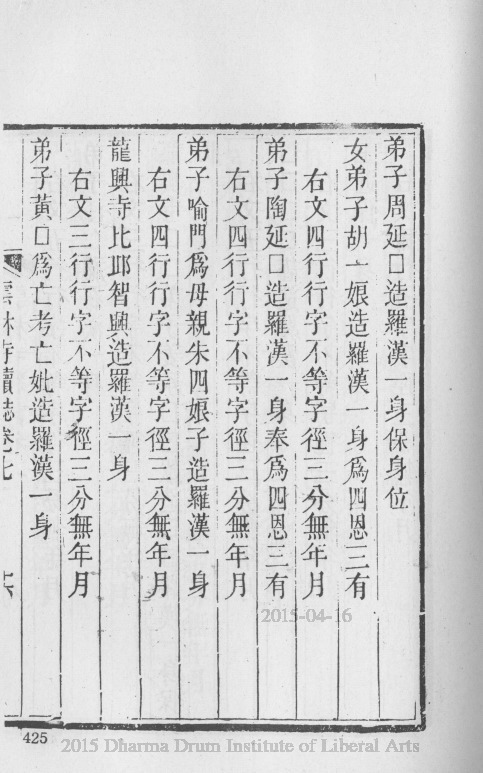 弟子周延□造羅漢一身保身位
女弟子胡一娘造羅漢一身爲四恩三有
右文四行行字不等字徑三分無年月
弟子陶延□造羅漢一身奉爲四恩三有
右文四行行字不等字徑三分無年月
弟子喻門爲母親朱四娘子造羅漢一身
右文四行行字不等字徑三分無年月
龍興寺比邱智興造羅漢一身
右文三行行字不等字徑三分無年月
弟子黃□爲亡考亡妣造羅漢一身
林寺續誌卷七
2015-04-16
425
2015 Dharma Drum Institute of Liberal Arts